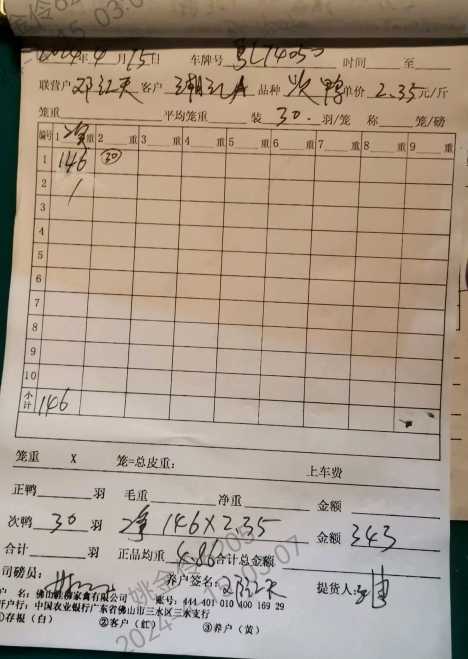 2024年4月15日 车牌号 时间 至
联营户 邓红天 客户 品种 次鸭 单价 2.35元/斤
笼重 平均笼重 装 30. 羽/笼 称 笼/磅
编号 1 重 2 重 3 重 4 重 5 重 6 重 7 重 8 重 9 重
1 146 30
2
3
4
5
6
7
8
9
10
小计 146
笼重 X 笼=总皮重: 上车费
正鸭 羽 毛重 净重 金额
次鸭 30 羽 净 146X2.35 金额 343
合计 羽 正品均重 4.86 合计总金额
司磅员: 养户签名: 邓红天 提货人:
户 名: 佛山 家禽有限公司 账号: 444 401 010 400 169 29
开户行: 中国农业银行广东省佛山市三水区三水支行
①存根(白) ②客户(红) ③养户(黄)